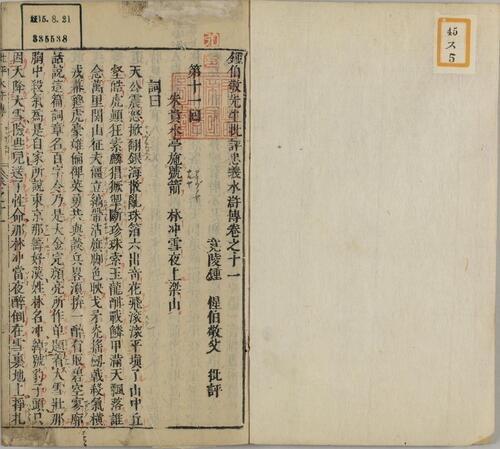 45
ス
5
昭15.8.21
335538
鍾伯敬先生批評忠義水滸傳卷之十一
竟陵鍾 惺伯敬父 批評
第十一回
朱貴水亭施號箭 林冲雪夜上梁山
詞曰
天公震怒掀翻銀海散亂珠箔六出奇花飛滾滾平塡了山中丘
壑皓虎顚狂素麟猖獗掣斷珍珠索玉龍酣戰鱗甲滿天飄落誰
念萬里關山征夫僵立縞帶沾旗脚色映戈矛光搖劍戟殺氣橫
戎幕貔虎豪雄偏裨英勇共與談兵畧須拚一醉看取碧空寥廓
話說這篇詞章名百字令乃是大金完顏亮所作單題着大雪壯那
胸中殺氣爲是自家所說東京那籌好漢姓林名冲綽號豹子頭只
因天降大雪險些兒送了性命那林冲當夜醉倒在雪裏地上掙扎